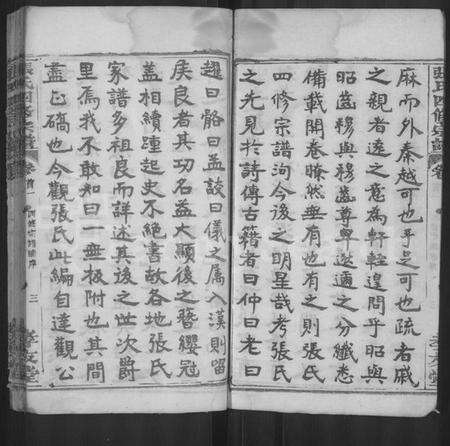 麻而外秦越可也乎是可也疏者戚
之親者遠之意為軒輊遑問乎昭與
昭齒穆與穆齒尊卑遠邇之分纖悉
備載開卷瞭然無有也有之則張氏
四修宗譜洵今後之明星哉考張氏
之先見於詩傳古籍者曰仲曰老曰
趯曰骼曰孟談曰儀之屬入漢則留
侯良者其功名益大顯後之簪纓冠
蓋相續踵起史不絕書故各地張氏
家譜多祖良而詳述其後之世次爵
里焉我不敢知曰一無極附也其間
盡正碻也今觀張氏此編自達觀公
張氏四修宗譜
卷首一
三
孝友堂